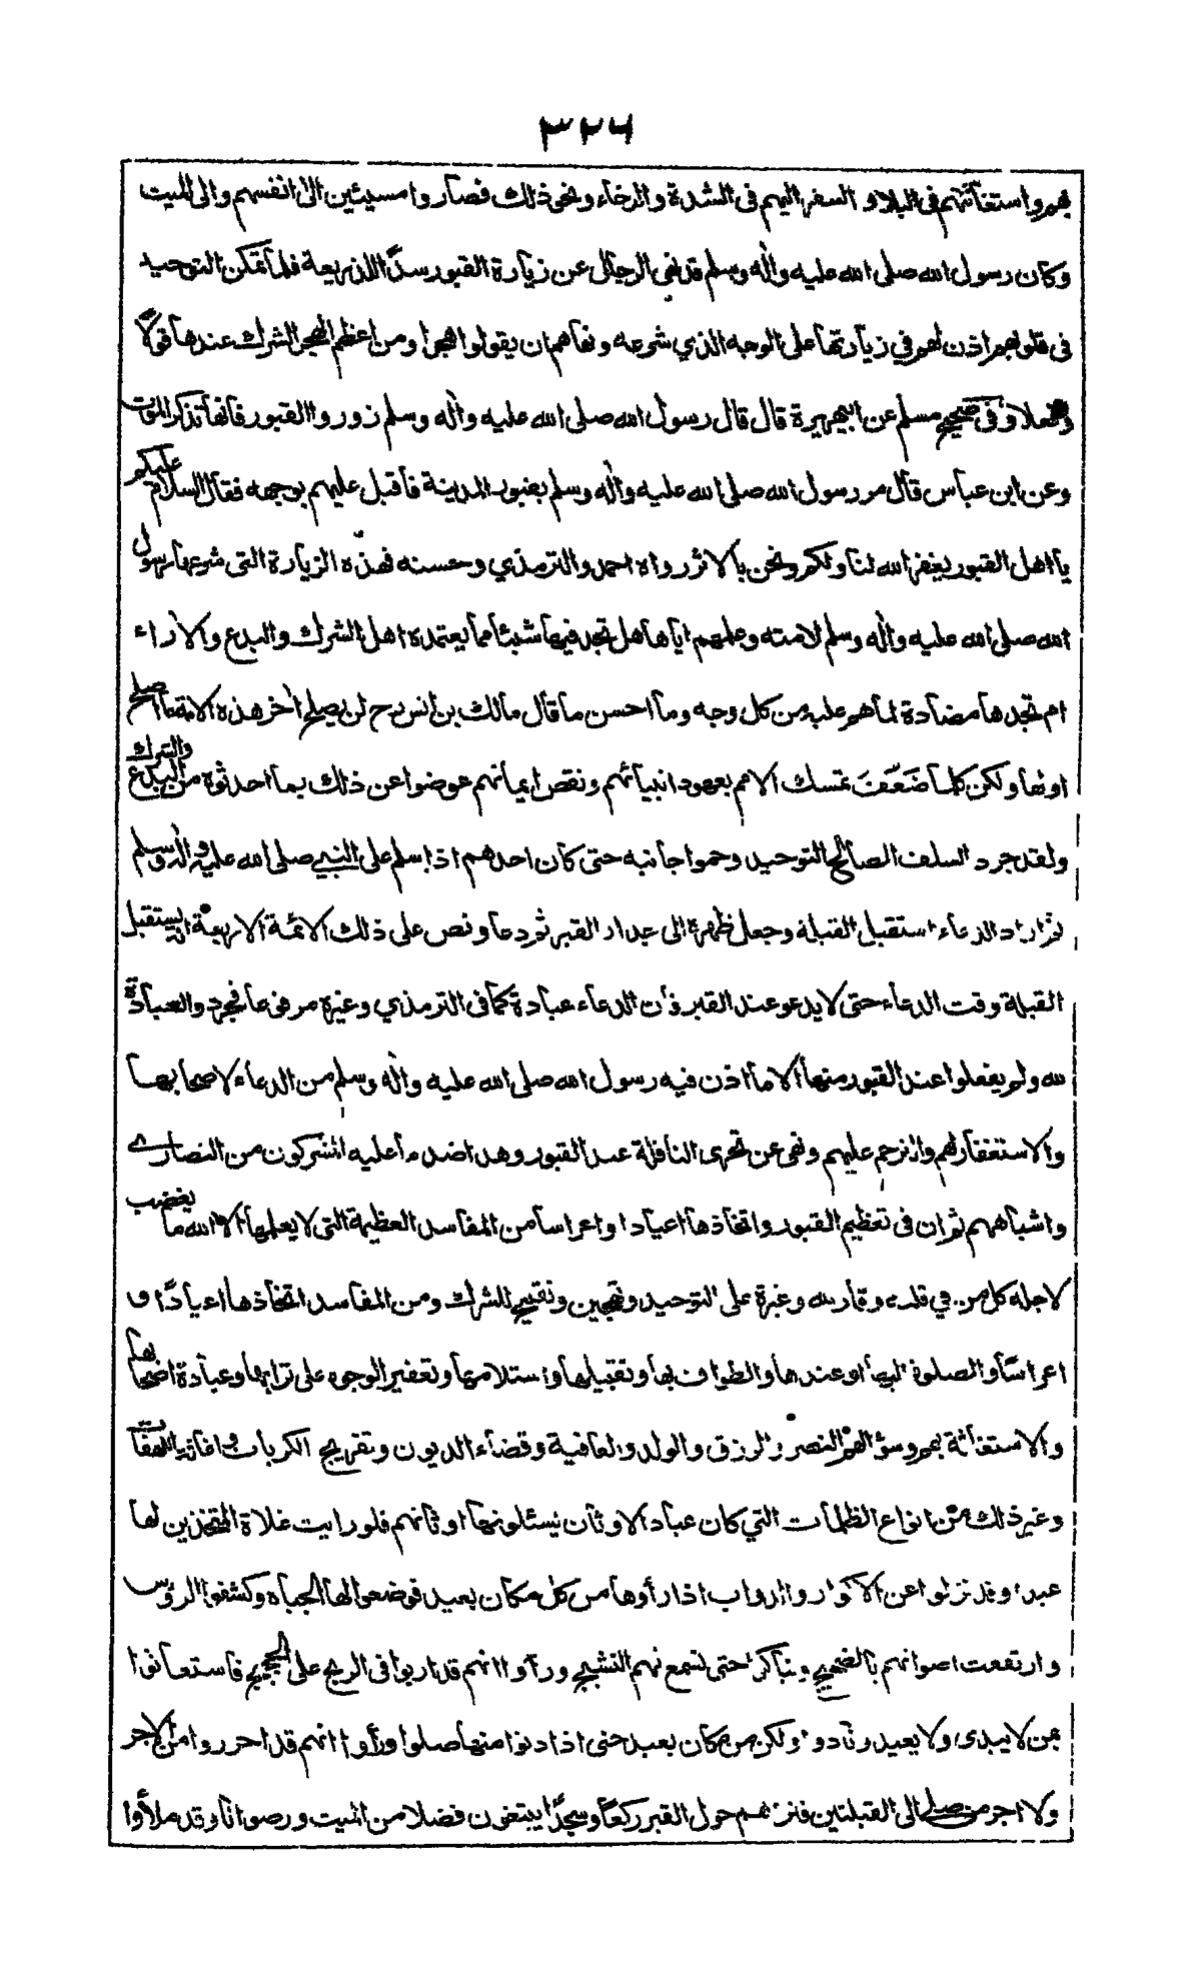 ٣٢٦
بهم واستغاثتهم في البلاد والسفر اليهم في الشدة والرخاء ونحو ذلك فصاروا مسيئين الى انفسهم والى الميت
وكان رسول الله صلى الله عليه وآله وسلم قد نهى الرجال عن زيارة القبور سدًّا للذريعة فلما تمكن التوحيد
في قلوبهم اذن لهم في زيارتها على الوجه الذي شرعه ونهاهم ان يقولوا هجرا ومن اعظم الهجر الشرك عندها قولًا
وفعلا وفي صحيح مسلم عن ابيهريرة قال قال رسول الله صلى الله عليه وآله وسلم زوروا القبور فانها تذكر الموت
وعن ابن عباس قال مر رسول الله صلى الله عليه وآله وسلم بقبور المدينة فاقبل عليهم بوجهه فقال السلام عليكم
يا اهل القبور يغفر الله لنا ولكم ونحن بالاثر رواه احمد والترمذي وحسنه فهذه الزيارة التي شرعها رسول
الله صلى الله عليه وآله وسلم لامته وعلمهم اياها هل تجد فيها شيئا مما يعتمده اهل الشرك والبدع والاراء
ام تجدها مضادة لما هم عليه من كل وجه وما احسن ما قال مالك بن انس رح لن يصلح آخر هذه الامة الا ما اصلح
اولها ولكن كلما ضَعُفَ تمسك الامم بعهود انبيائهم ونقص ايمانهم عوضوا عن ذلك بما احدثوه من البدع والشرك
ولقد جرد السلف الصالح التوحيد وحموا جانبه حتى كان احدهم اذا سلم على النبي صلى الله عليه وآله وسلم
ثم اراد الدعاء استقبل القبلة وجعل ظهره الى جدار القبر ثم دعا ونص على ذلك الائمة الاربعة انه يستقبل
القبلة وقت الدعاء حتى لا يدعو عند القبر فان الدعاء عبادة كما في الترمذي وغيره مرفوعا فجردوا العبادة
لله ولم يفعلوا عند القبور منها الا ما اذن فيه رسول الله صلى الله عليه وآله وسلم من الدعاء لاصحابها
والاستغفار لهم والترحم عليهم ونهى عن تحرى النافلة عند القبور وهذا ضد ما عليه المشركون من النصارى
واشباههم ثم ان في تعظيم القبور واتخاذها اعيادا واعراسا من المفاسد العظيمة التي لا يعلمها الا الله ما يغضب
لاجله كل من في قلبه وقار لله وغيرة على التوحيد وتهجين وتقبيح للشرك ومن المفاسد اتخاذها اعيادًا و
اعراسًا والصلوة اليها او عندها والطواف بها وتقبيلها واستلامها وتعفير الوجوه على ترابها وعبادة اصحابها
والاستغاثة بهم وسؤالهم النصر والرزق والولد والعافية وقضاء الديون وتفريج الكربات واغاثة اللهفات
وغير ذلك من انواع الطلبات التي كان عباد الاوثان يسئلونها اوثانهم فلو رايت غلاة المتخذين لها
عيدا وقد نزلوا عن الاكوار والدواب اذا رأوها من كل مكان بعيد فوضعوا لها الجباه وكشفوا الرؤس
وارتفعت اصواتهم بالضجيج وتباكوا حتى تسمع لهم النشيج ورأوا انهم قد اربوا في الربح على الحجيج فاستغاثوا
بمن لا يبدى ولا يعيد ونادوا ولكن من مكان بعيد حتى اذا دنوا منها صلوا ورأوا انهم قد احرزوا من الاجر
ولا اجر من صلى الى القبلتين فتراهم حول القبر ركعًا وسجدًا يبتغون فضلا من الميت ورضوانا وقد ملأوا